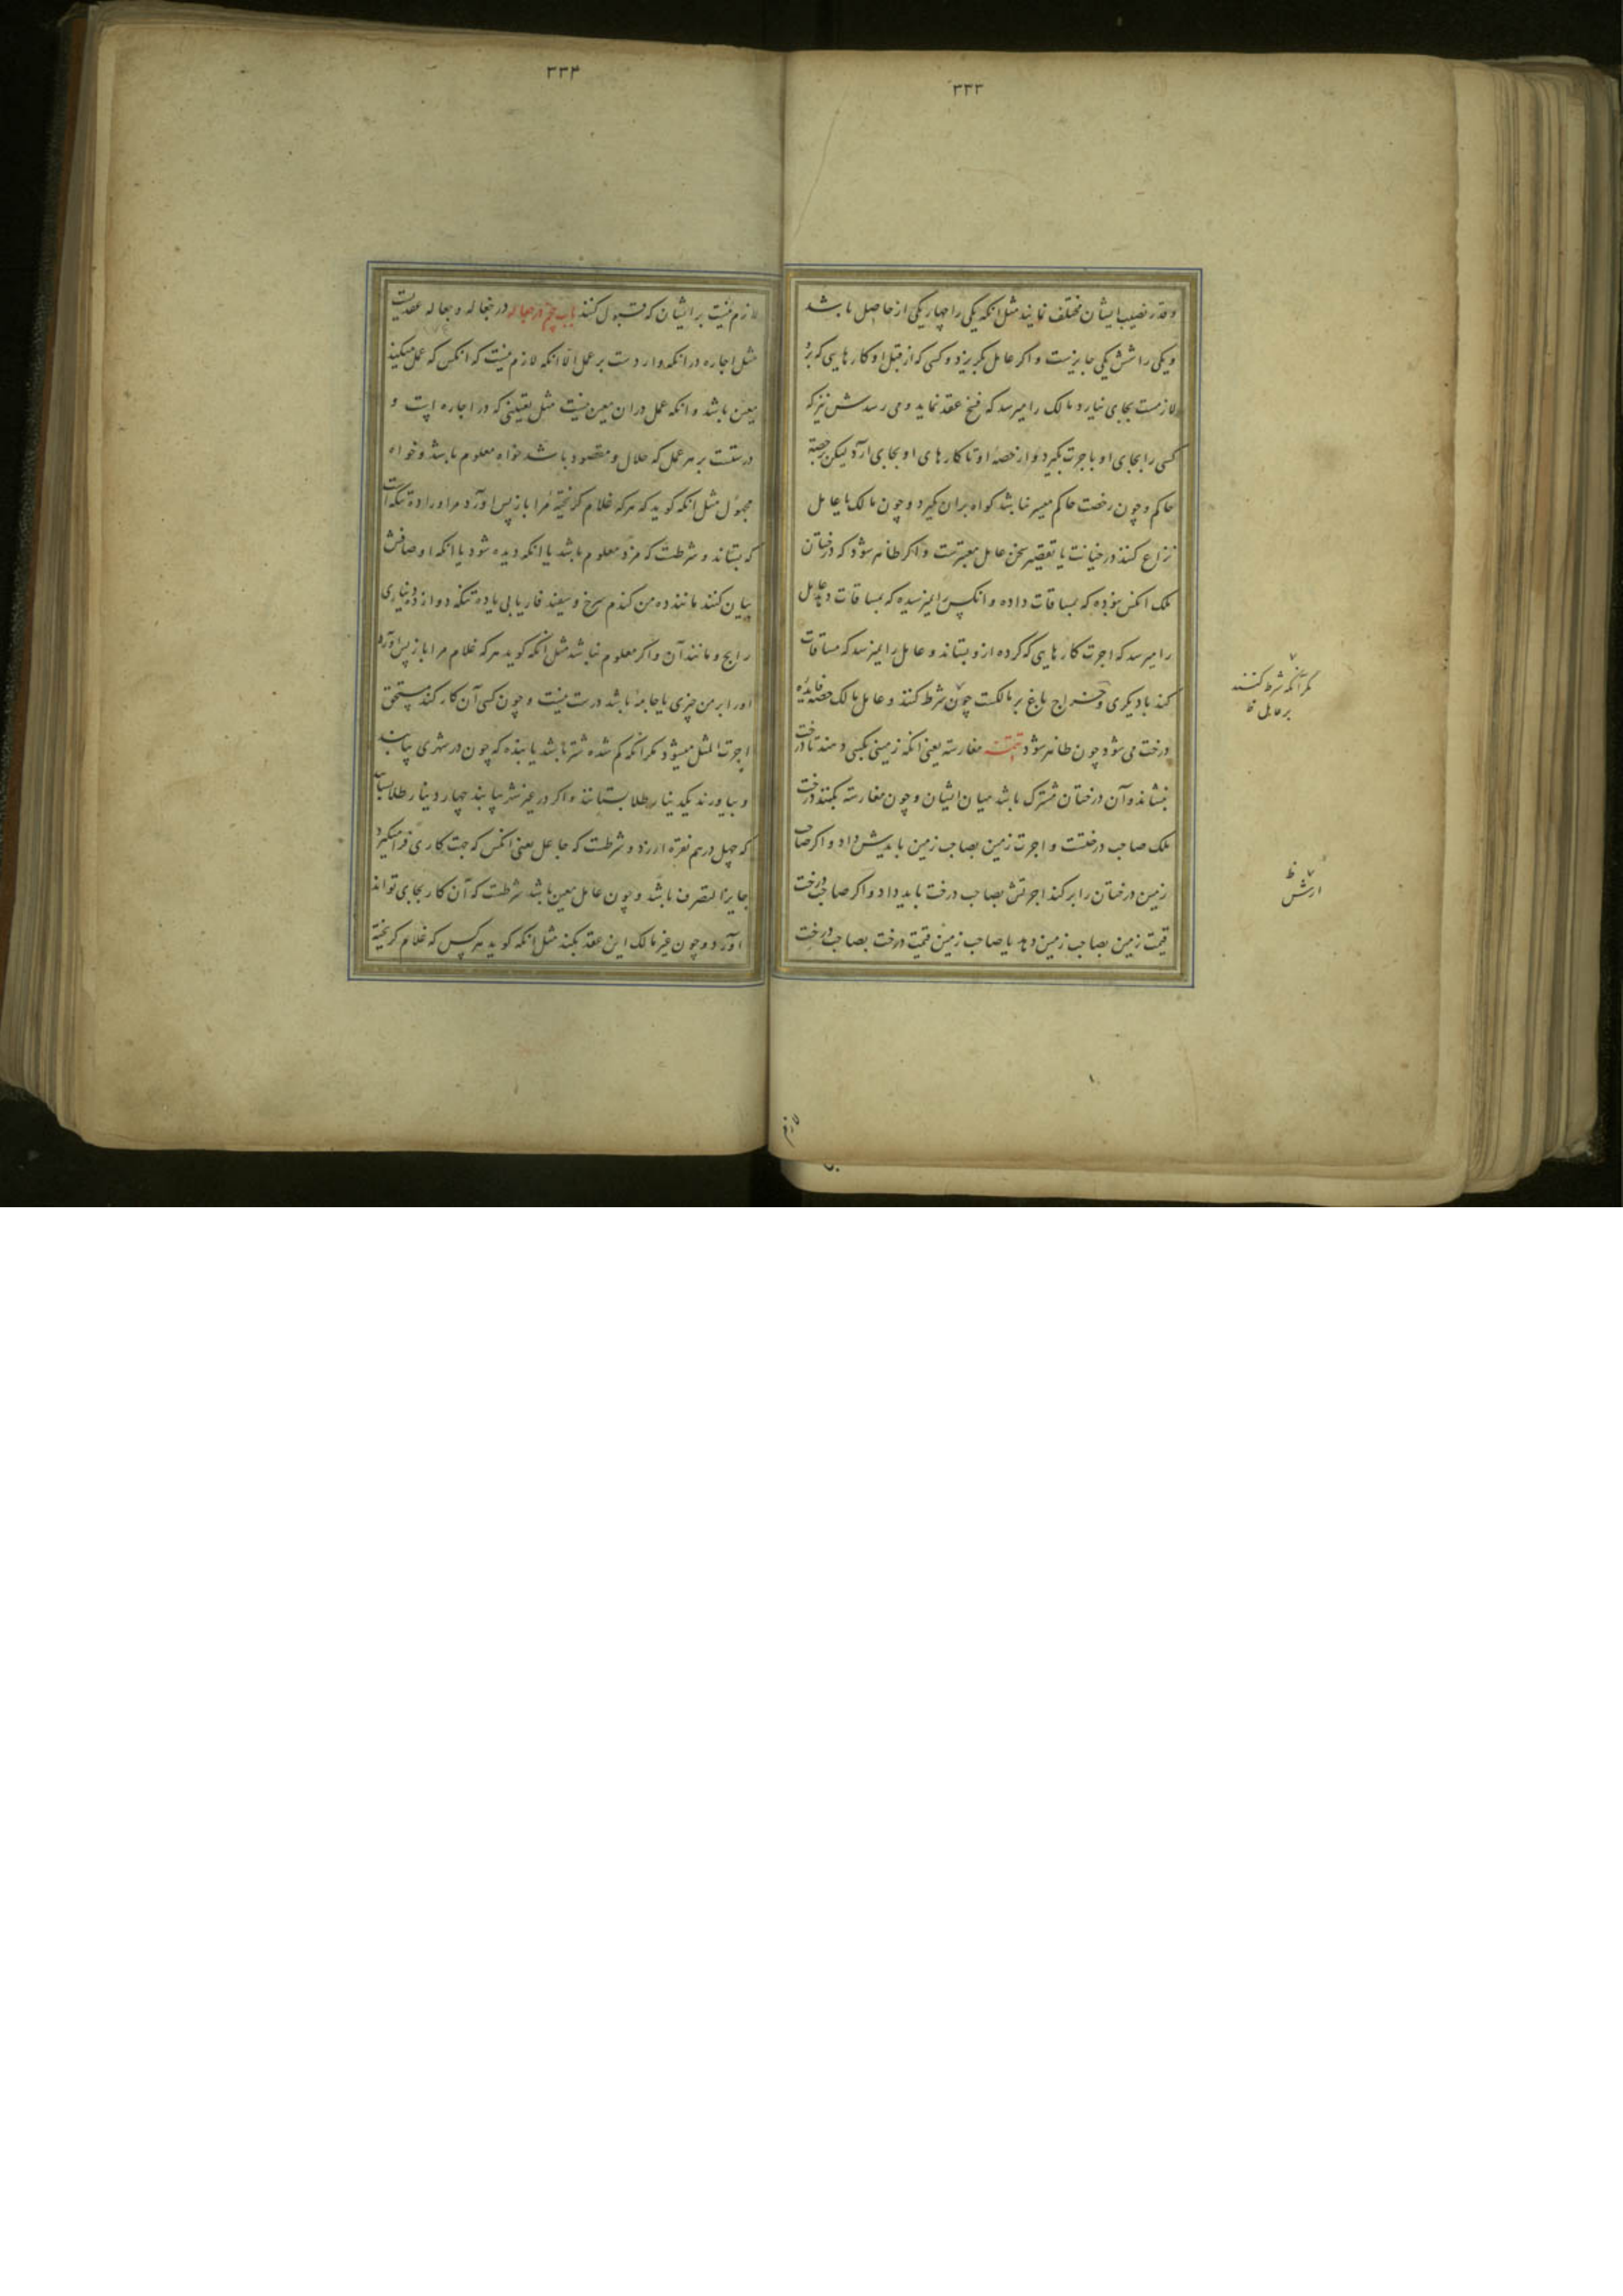 ۳۳۳
وقدر نصیب ایشان مختلف نمایند مثل انکه یکی را چهار یکی از حاصل باشد
ویکی را شش یکی جایزست و اکر عامل بکریزد وکسی که از قبل او کارهایی که برو
لازمست بجای نیارد مالک را میرسد که فسخ عقد نماید و می رسدش نیز که
کسی را بجای او باجرت بکیرد و از حصهٔ او تا کارهای او بجای آرد لیکن برخصة
حاکم و چون رخصت حاکم میسر نباشد کواه بران کیرد و چون مالک با عامل
نزاع کنند در خیانت یا تقصیر سخن عامل معتبرست و اکر ظاهر شود که درختان
ملک انکس نبوده که بمساقات داده و انکس را نمیرسیده که بمساقات دهد عامل
را میرسد که اجرت کارهایی که کرده ازو بستاند و عامل را نمیرسد که مساقات
کند با دیکری و خراج باغ بر مالکست چون شرط کنند و عامل مالک حصه فایدهٔ
درخت می شود چون ظاهر شود تتمت مغارسه یعنی انکه زمینی بکسی دهند تا درخت
بنشاند وآن درختان مشترک باشد میان ایشان و چون مغارسه بکنند درخت
ملک صاحب درختست و اجرت زمین بصاحب زمین بایدش داد و اکر صاحب
زمین درختان را برکند اجرتش بصاحب درخت باید داد و اکر صاحب درخت
قیمت زمین بصاحب زمین دهد یا صاحب زمین قیمت درخت بصاحب درخت
مکر آنکه شرط کنند
بر عامل
ارش
لازم
۳۳۴
لازم نیست بر ایشان که قبول کنند باب پنجم در جعاله در جعاله وجعاله عقدیست
مثل اجاره در انکه واردست بر عمل الا انکه لازم نیست که انکس که عمل میکند
معین باشد و انکه عمل دران معین نیست مثل تعیینی که در اجاره است و
درستست بر هر عمل که حلال و مقصود باشد خواه معلوم باشد و خواه
مجهول مثل انکه کوید که هرکه غلام کریختهٔ مرا باز پس اورد مر او را ده تنکه است
که بستاند و شرطست که مزد معلوم باشد یا انکه دیده شود یا انکه اوصافش
بیان کنند مانند ده من کندم سرخ و سفید فاریابی یا ده تنکه دوازده دیناری
رایج و مانند آن و اکر معلوم نباشد مثل انکه کوید هرکه غلام مرا باز پس اورد
اورا بر من چیزی یا جامهٔ باشد درست نیست و چون کسی آن کار کند مستحق
اجرت المثل میشود مکر انکه کم شده شتر باشد یا بنده که چون در شهری بیابند
و بیاورند یکدینار طلا بستانند و اکر در غیر شهر بیابند چهار دینار طلا بستانند
که چهل درهم نقره ارزد و شرطست که جاعل یعنی انکس که جهت کاری فرا میکیرد
جایز التصرف باشد و چون عامل معین باشد شرطست که آن کار بجای تواند
اورد و چون غیر مالک این عقد بکند مثل انکه کوید هرکس که غلام کریختهٔ